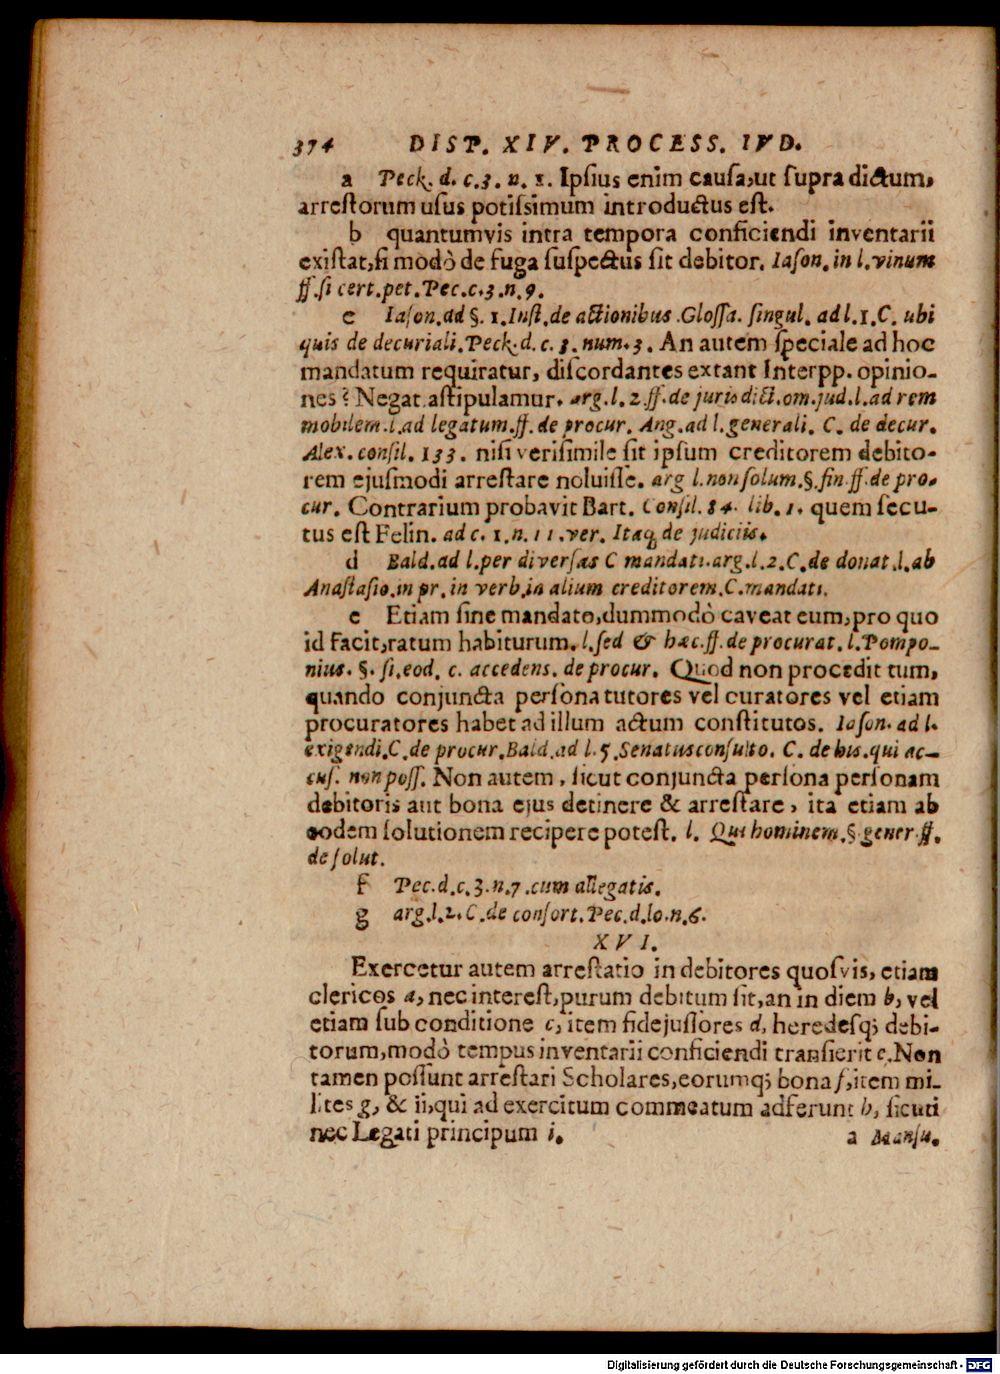 374 DIST. XIV. PROCESS. IVD.
a Peck. d. c. 3. n. 1. Ipſius enim cauſa, ut ſupra dictum,
arreſtorum uſus potiſsimum introductus eſt.
b quantumvis intra tempora conficiendi inventarii
exiſtat, ſi modò de fuga ſuſpectus ſit debitor. Iaſon. in l. vinum
ff. ſi cert. pet. Pec. c. 3. n. 9.
c Iaſon. ad §. 1. Inſt. de actionibus. Gloſſa. ſingul. ad l. 1. C. ubi
quis de decuriali. Peck. d. c. 3. num. 3. An autem ſpeciale ad hoc
mandatum requiratur, diſcordantes extant Interpp. opinio-
nes? Negat. aſtipulamur. arg. l. 2. ff. de juris dict. om. jud. l. ad rem
mobilem. l. ad legatum. ff. de procur. Ang. ad l. generali. C. de decur.
Alex. conſil. 133. niſi veriſimile ſit ipſum creditorem debito-
rem ejuſmodi arreſtare noluiſſe. arg l. non ſolum. §. fin. ff. de pro-
cur. Contrarium probavit Bart. Conſil. 84. lib. 1. quem ſecu-
tus eſt Felin. ad c. 1. n. 11. ver. Itaq; de judiciis.
d Bald. ad l. per diverſas C mandati. arg. l. 2. C. de donat. l. ab
Anaſtaſio. in pr. in verb. in alium creditorem. C. mandati.
e Etiam ſine mandato, dummodò caveat eum, pro quo
id facit, ratum habiturum. l. ſed & hæc. ff. de procurat. l. Pompo-
nius. §. ſi. eod. c. accedens. de procur. Quod non procedit tum,
quando conjuncta perſona tutores vel curatores vel etiam
procuratores habet ad illum actum conſtitutos. Iaſon. ad l.
exigendi. C. de procur. Bald. ad l. 5. Senatusconſulto. C. de his. qui ac-
cuſ. non poſſ. Non autem, ſicut conjuncta perſona perſonam
debitoris aut bona ejus detinere & arreſtare, ita etiam ab
eodem ſolutionem recipere poteſt. l. Qui hominem. §. gener. ff.
de ſolut.
f Pec. d. c. 3. n. 7. cum allegatis.
g arg. l. 2. C. de conſort. Pec. d. lo. n. 6.
XVI.
Exercetur autem arreſtatio in debitores quoſvis, etiam
clericos a, nec intereſt, purum debitum ſit, an in diem b, vel
etiam ſub conditione c, item fidejuſſores d, heredeſq; debi-
torum, modò tempus inventarii conficiendi tranſierit e. Non
tamen poſſunt arreſtari Scholares, eorumq; bona f, item mi-
lites g, & ii, qui ad exercitum commeatum adferunt h, ſicuti
nec Legati principum i.
a Manſu.
Digitalisierung gefördert durch die Deutsche Forschungsgemeinschaft - DFG